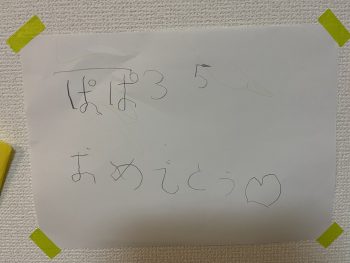 ぱぱ35
おめでとう♡